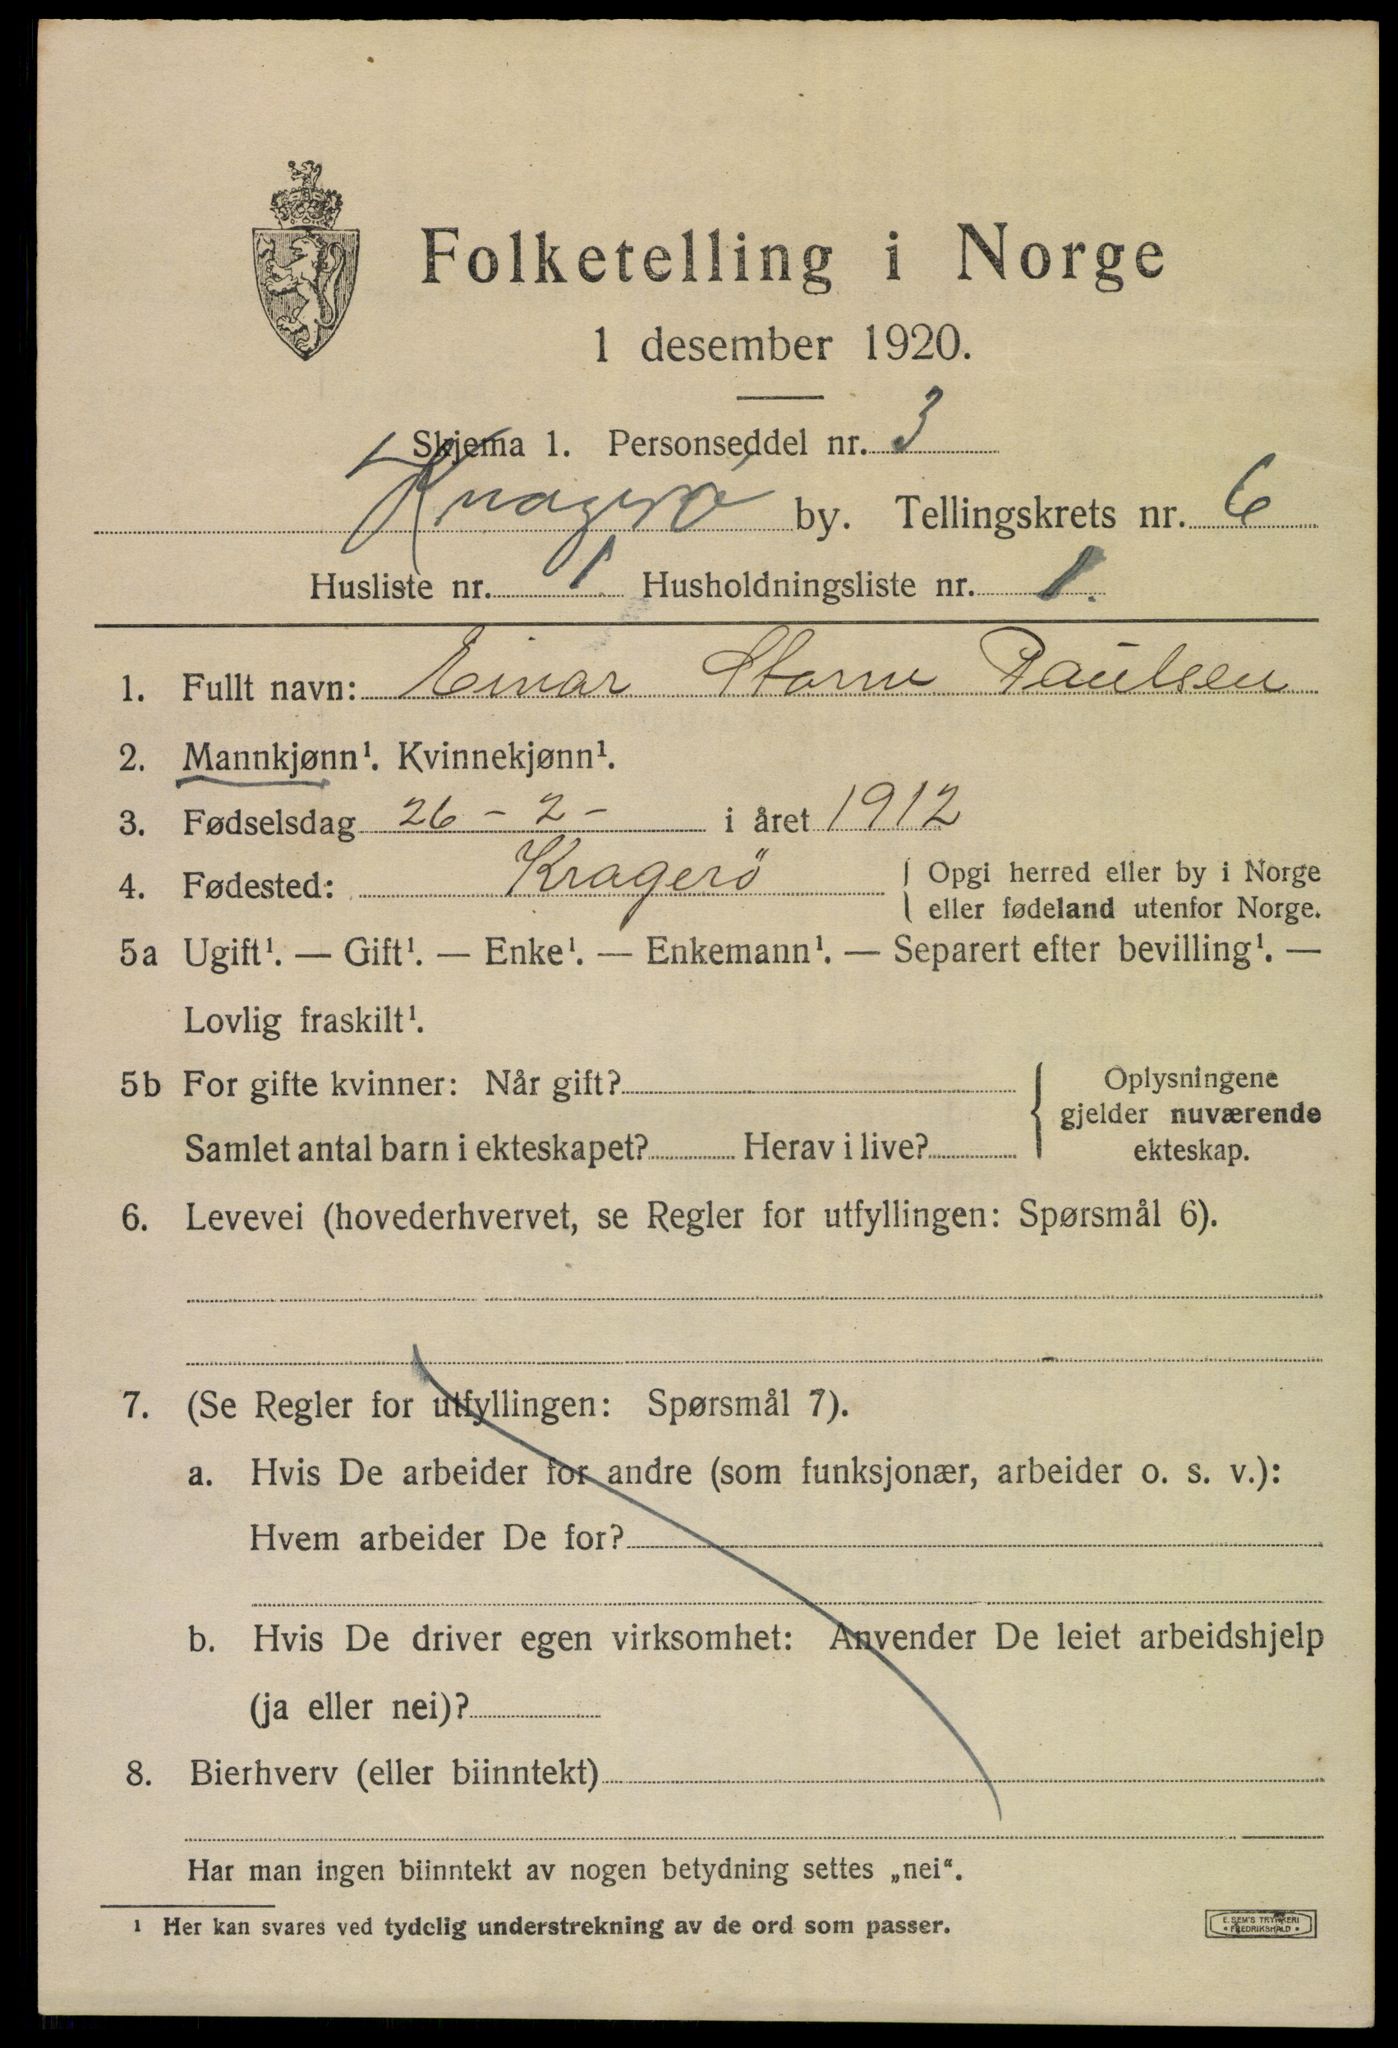 Folketelling i Norge
1 desember 1920.
Skjema 1. Personseddel nr. 3
Kragerø by. Tellingskrets nr. 6
Husliste nr. 1 Husholdningsliste nr. 1.
1. Fullt navn: Einar Storm Paulsen
2. Mannkjønn¹. Kvinnekjønn¹.
3. Fødselsdag 26 - 2 - i året 1912
4. Fødested: Kragerö
Opgi herred eller by i Norge
eller fødeland utenfor Norge.
5a Ugift¹. — Gift¹. — Enke¹. — Enkemann¹. — Separert efter bevilling¹. —
Lovlig fraskilt¹.
5b For gifte kvinner: Når gift?
Samlet antal barn i ekteskapet? Herav i live?
Oplysningene
gjelder nuværende
ekteskap.
6. Levevei (hovederhvervet, se Regler for utfyllingen: Spørsmål 6).
7. (Se Regler for utfyllingen: Spørsmål 7).
a. Hvis De arbeider for andre (som funksjonær, arbeider o. s. v.):
Hvem arbeider De for?
b. Hvis De driver egen virksomhet: Anvender De leiet arbeidshjelp
(ja eller nei)?
8. Bierhverv (eller biinntekt)
Har man ingen biinntekt av nogen betydning settes „nei“.
¹ Her kan svares ved tydelig understrekning av de ord som passer.
E. SEM'S TRYKKERI
• FREDRIKSHALD •